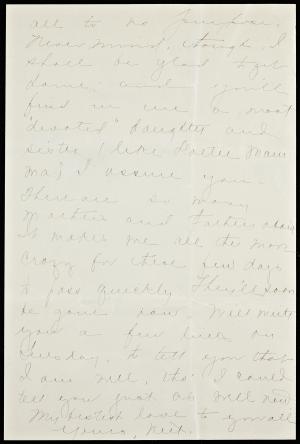 all to no purpose.
Never mind, though, I
shall be glad to get
home; and you'll
find in me a most
"devoted" daughter and
sister (like
ma) I assure you.
There are so many
Mothers and Fathers
It makes me all the more
crazy for these few days
to pass quickly. They'll soon
be gone now. Will write
you a few lines on
Tuesday, to tell you that
I am well, tho' I could
tell you just as well now
My best love to you all
Yours,